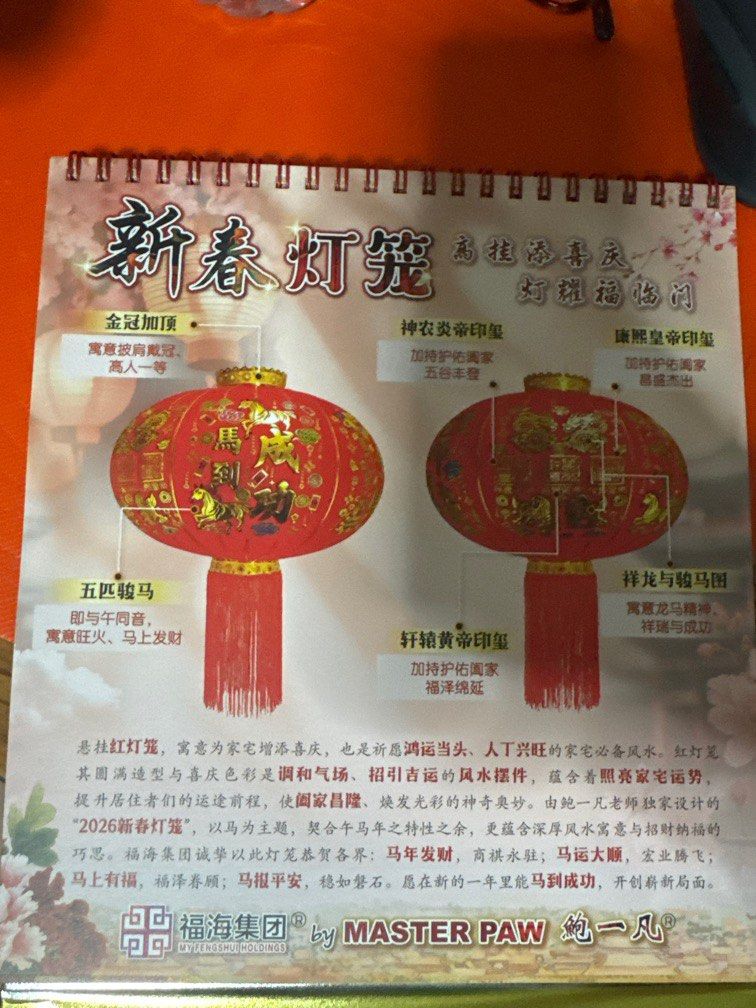 新春灯笼
高挂添喜庆
灯耀福临门
金冠加顶
寓意披肩戴冠、
高人一等
神农炎帝印玺
加持护佑阖家
五谷丰登
康熙皇帝印玺
加持护佑阖家
昌盛杰出
馬到
成功
五匹骏马
即与午同音，
寓意旺火、马上发财
轩辕黄帝印玺
加持护佑阖家
福泽绵延
祥龙与骏马图
寓意龙马精神、
祥瑞与成功
悬挂红灯笼，寓意为家宅增添喜庆，也是祈愿鸿运当头、人丁兴旺的家宅必备风水。红灯笼
其圆满造型与喜庆色彩是调和气场、招引吉运的风水摆件，蕴含着照亮家宅运势，
提升居住者们的运途前程，使阖家昌隆、焕发光彩的神奇奥妙。由鲍一凡老师独家设计的
“2026新春灯笼”，以马为主题，契合午马年之特性之余，更蕴含深厚风水寓意与招财纳福的
巧思。福海集团诚挚以此灯笼恭贺各界：马年发财，商祺永驻；马运大顺，宏业腾飞；
马上有福，福泽春顾；马报平安，稳如磐石。愿在新的一年里能马到成功，开创崭新局面。
福海集团® by MASTER PAW 鲍一凡®
MY FENGSHUI HOLDINGS